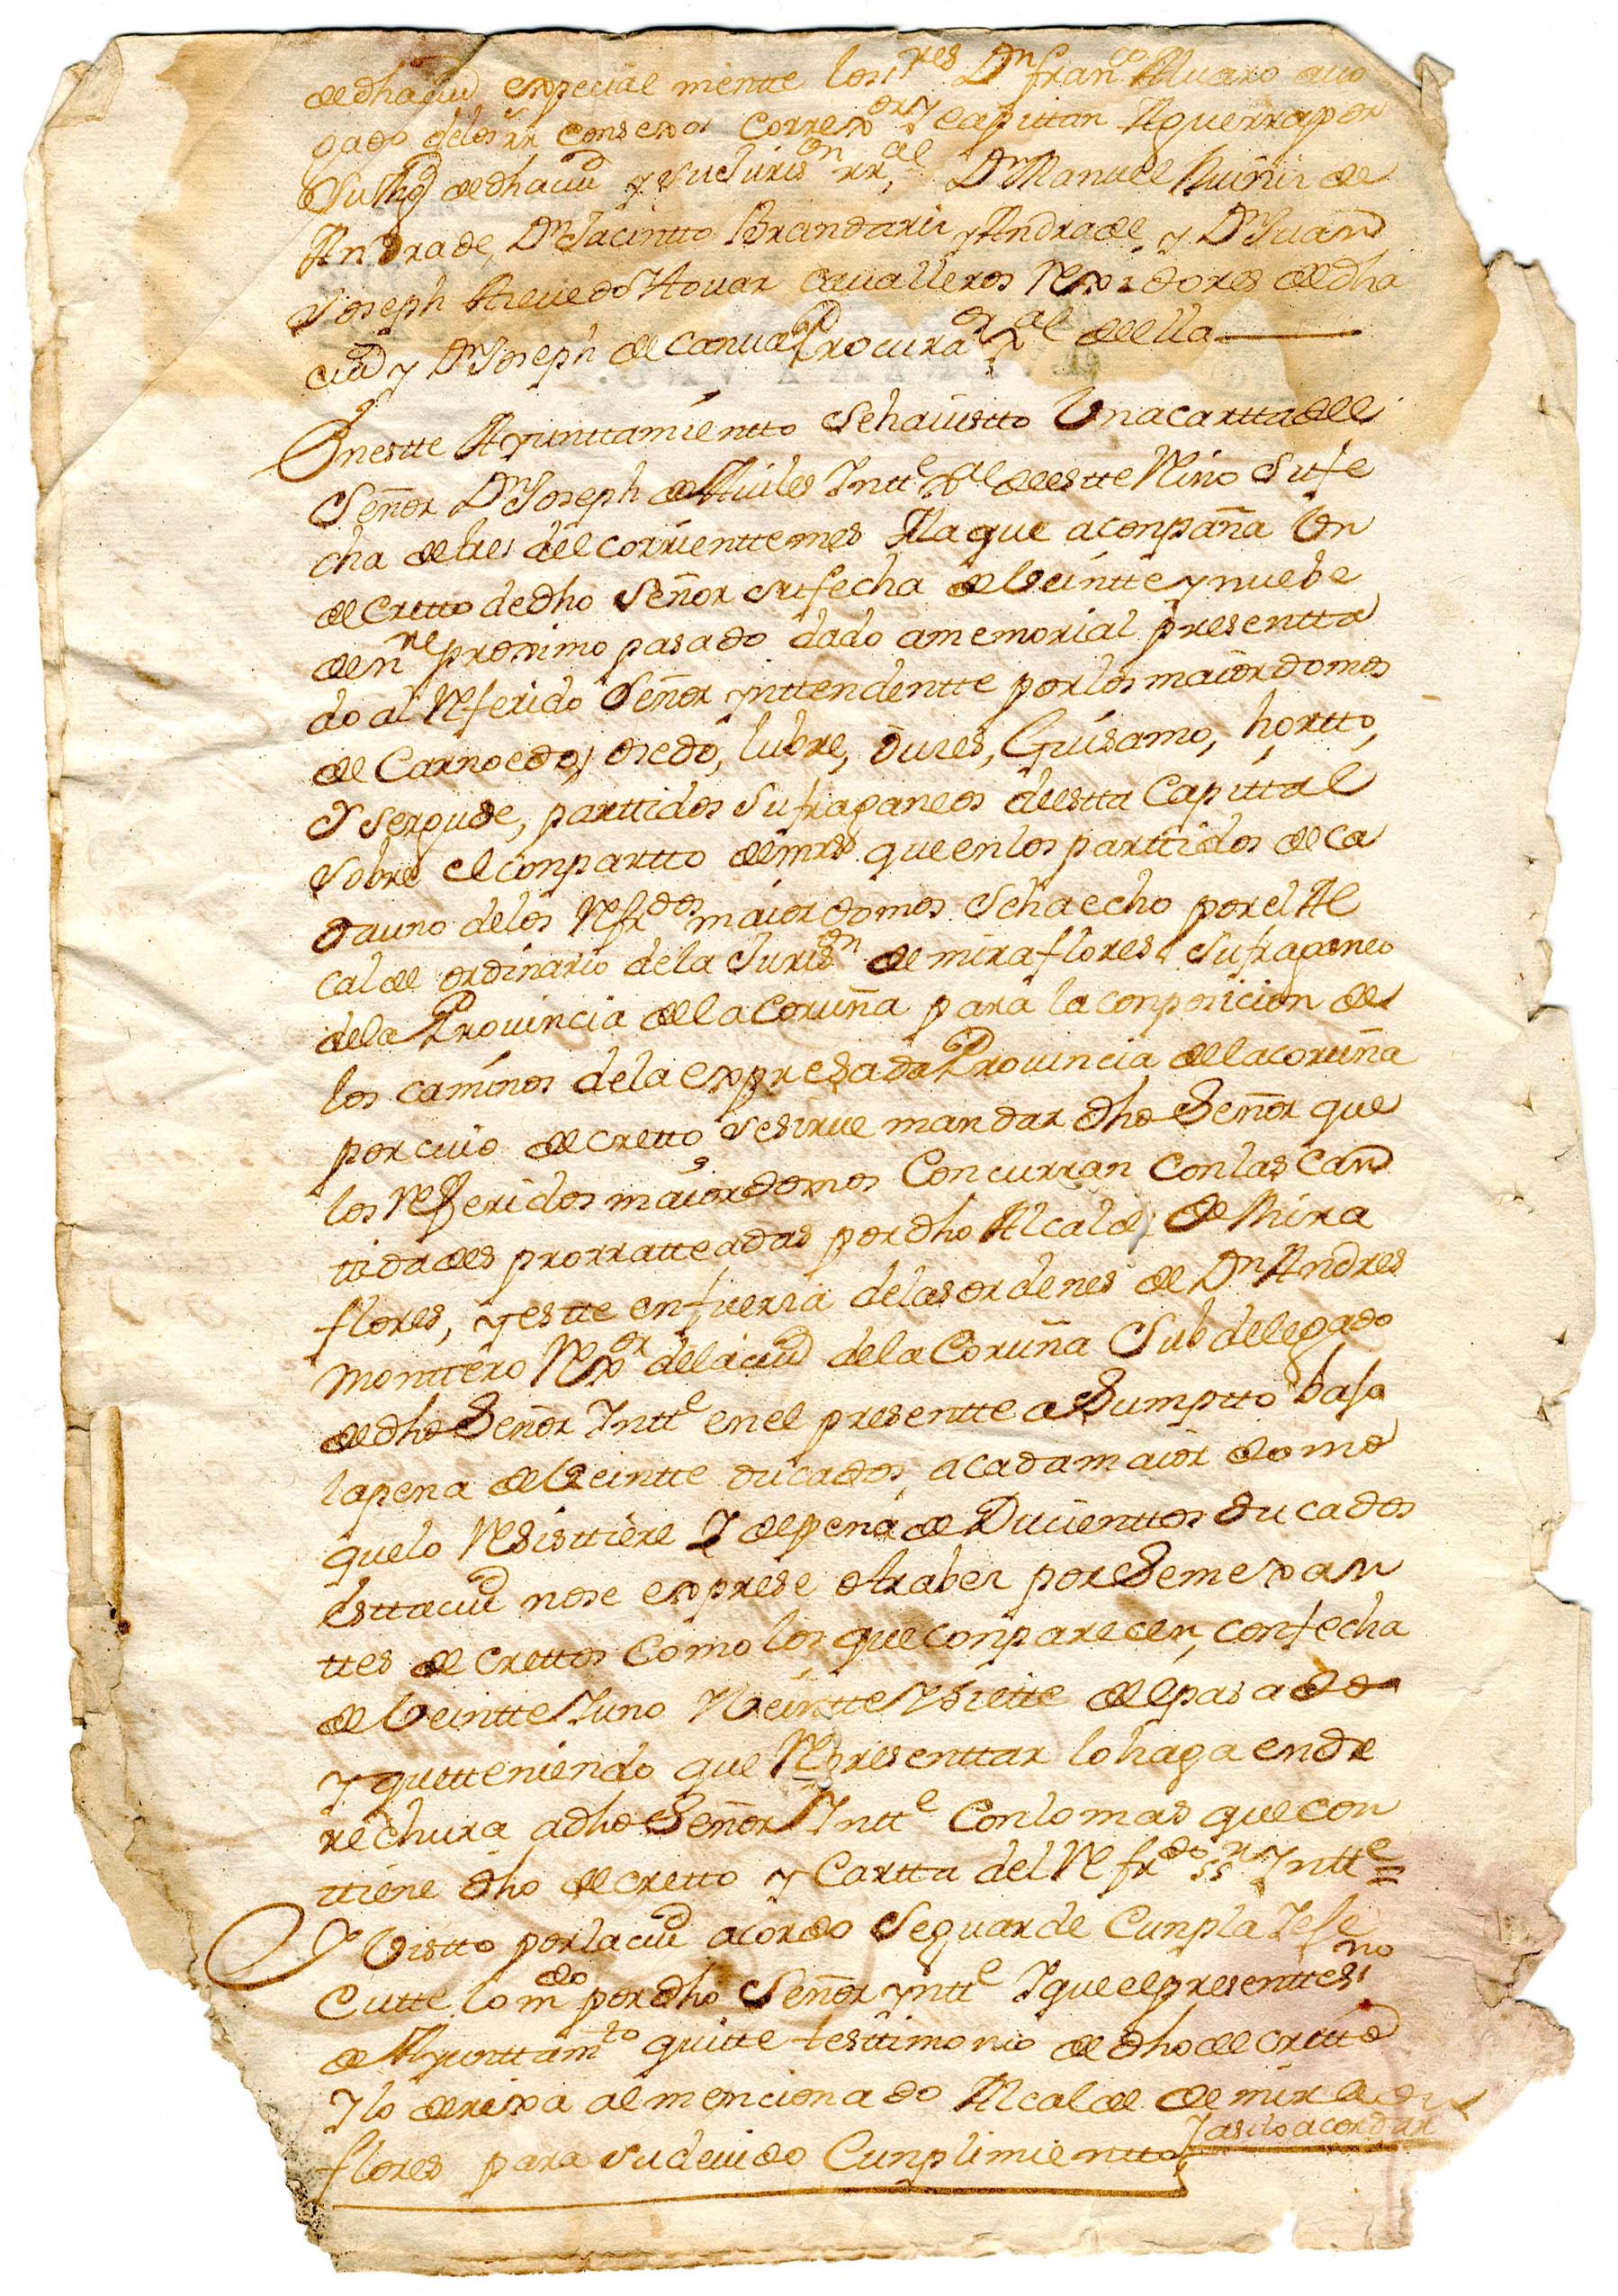 de dha ciud expecial mentte los s.res Dn franco Aluaro auo
gado de los rr.s consexos Correx.or y Capittan Aguerra por
Su Mgd de dha ciud y su Juris.on rr.al, Dn Manuel Muñiz de
Andrade, Dn Jacintto Brandariz y Andrade, y Dn Juan
Joseph Azeuedo Touar caualleros Rexidores de dha
ciud y Dn Joseph de Canua Procura.or x.al de ella
En estte Ayunttamientto Se ha uistto Una cartta del
Señor Dn Joseph de Auiles Intt.e x.al de estte Reino Su fe
cha de tres del corrientte mes Ala que aconpaña Un
decretto de dho Señor su fecha de Veintte y nuebe
de n.re proximo pasado dado a memorial presentta
do al Referido Señor ynttendentte por los maiordomos
de Carnoedo, osedo, lubre, ouces, Guisamo, hortto,
y sergude, parttidos Sufraganeos de estta Capittal
sobre el conpartto de mrs que en los parttidos de ca
da uno de los Refr.dos maiordomos Se ha echo por el Al
calde ordinario de la Juris.on de miraflores Sufraganeo
de la Prouincia de la Coruña para la conposicion de
los caminos de la expresada Prouincia de la coruña
por cuio decretto se sirue mandar dho Señor que
los Referidos maiordomos Concurran con las Can
ttidades prorratteadas por dho Alcalde de Mira
flores, y estte en fuerza de las ordenes de Dn Andres
monttero Rex.or de la ciud de la Coruña Subdelegado
de dho Señor Intt.e en el presentte a Sumptto bajo
la pena de Veintte ducados, a cada maior domo
que lo Resisttiere Y de pena de Ducienttos ducados
estta ciud no se exprese otra bez por Semexan
ttes decrettos como los que conparecen, con fecha
de Veintte Y uno Y Veintte Y siette del pasado
y que tteniendo que Representtar lo haga en de
rechura a dho Señor Intt.e Con lo mas que con
ttiene dho decretto y Cartta del Refr.do ss.r Intt.e =
Y Vistto por la ciud acordo Se guarde Cunpla Y eje
cutte lo m.do por dho Señor yntt.e Y que el presentte ss.no
de Ayunttam.to quitte testtimonio de dho decretto
Y lo derixa al mencionado Alcalde de mira
flores para su deuido Cunplimientto Y asi lo acordar